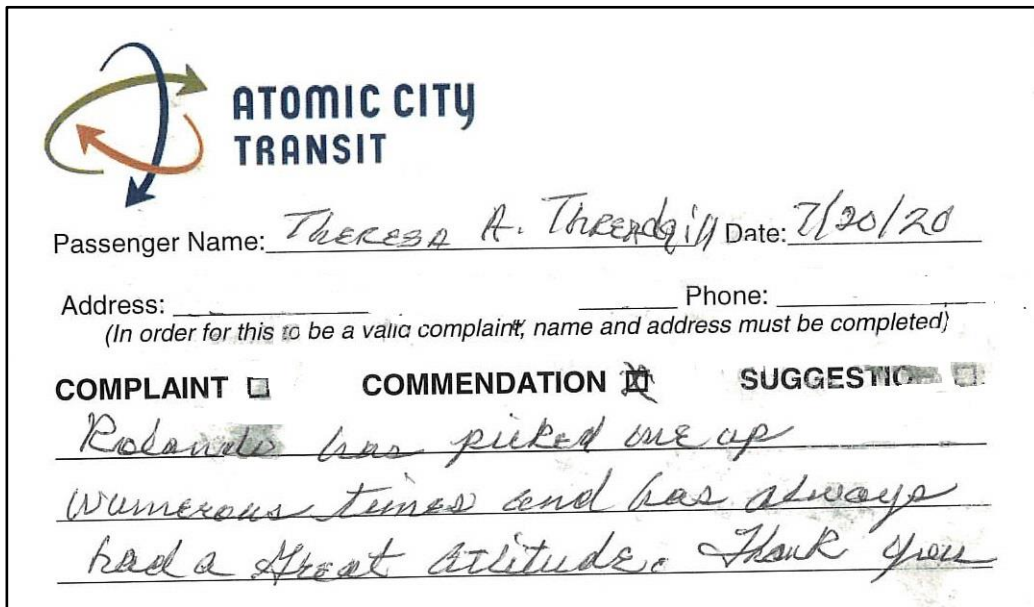 ATOMIC CITY
TRANSIT
Passenger Name: THERESA A. THREADgill Date: 7/20/20
Address: Phone:
(In order for this to be a valid complaint, name and address must be completed)
COMPLAINT COMMENDATION SUGGESTIO
Rolando has picked me up
numerous times and has always
had a Great attitude. Thank you